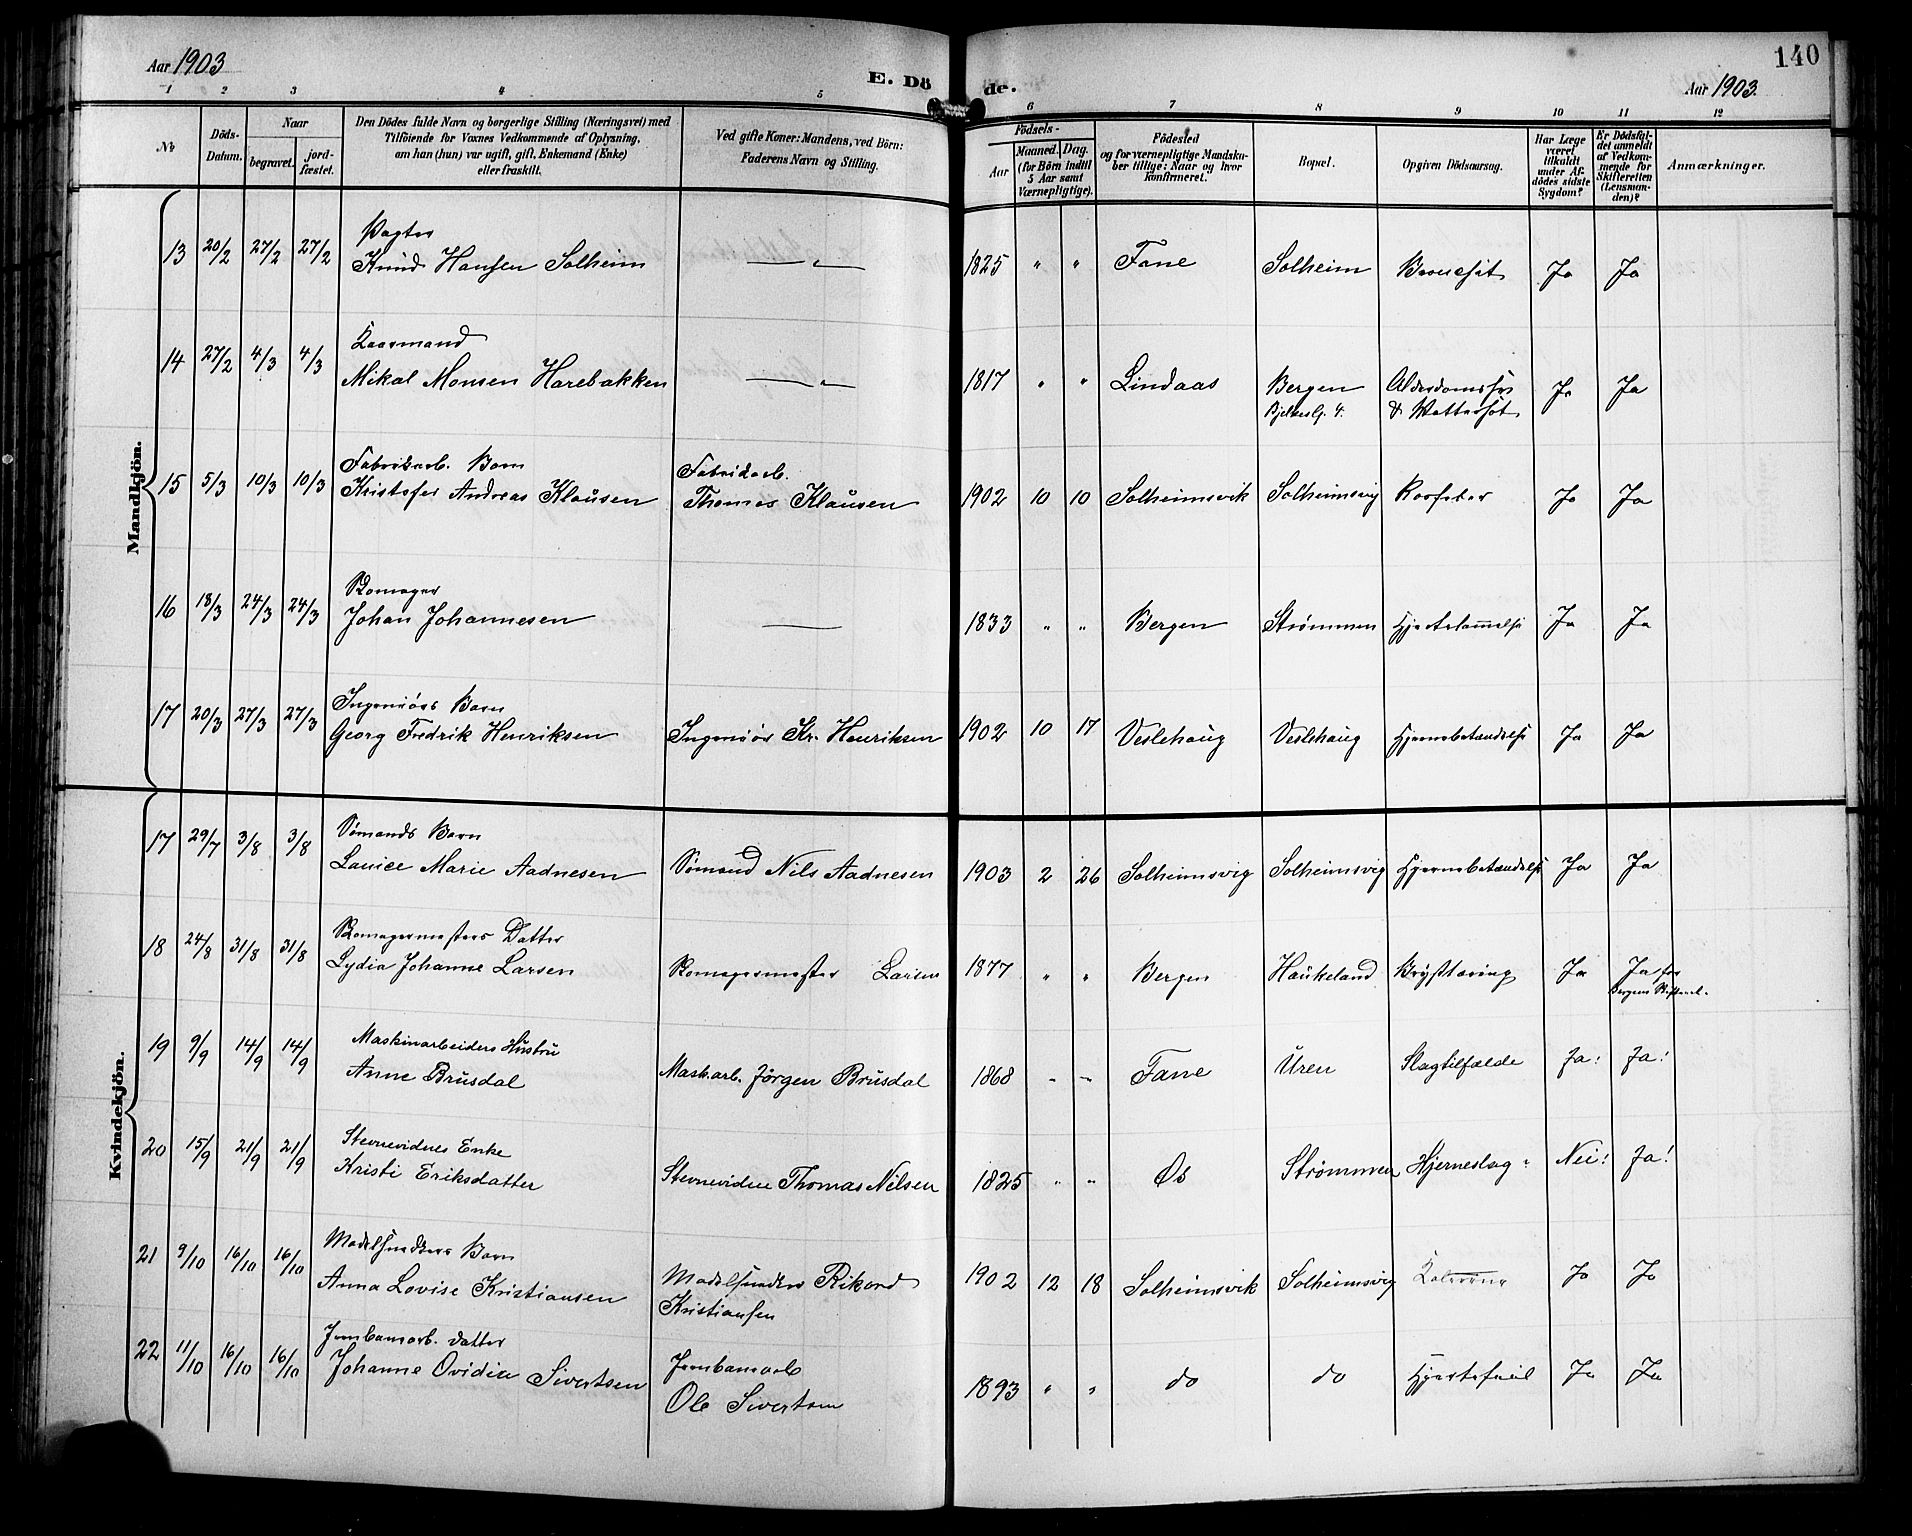 Aar 1903
E. Döde.
140
Aar 1903.
1 2 3 4 5 6 7 8 9 10 11 12
No
Döds-Datum.
Naar
begravet.
jordfæstet.
Den Dödes fulde Navn og borgerlige Stilling (Næringsvei) med
Tilföiende for Voxnes Vedkommende af Oplysning,
om han (hun) var ugift, gift, Enkemand (Enke)
eller fraskilt.
Ved gifte Koner: Mandens, ved Börn:
Faderens Navn og Stilling.
Födsels-
Aar
Maaned. Dag.
(for Börn indtil
5 Aar samt
Værnepligtige).
Födested
og for værnepligtige Mandska-
ber tillige: Naar og hvor
konfirmeret.
Bopæl.
Opgiven Dödsaarsag.
Har Læge
været
tilkaldt
under Af-
dödes sidste
Sygdom?
Er Dödsfal-
det anmeldt
af Vedkom-
mende for
Skifteretten
(Lensman-
den)?
Anmærkninger.
Mandkjön.
Pagter
13 20/2 27/2 27/2 Knud Hansen Solheim — " 1825 " " Fane Solheim Ja Ja
Kaarmand
14 27/2 4/3 4/3 Mikal Monsen Harebakken — " 1817 " " Lindaas Bergen Alderdomssøt Ja Ja
4. &
Fabrikarb. Barn Fabrikarb.
15 5/3 10/3 10/3 Kristofer Andreas Klausen Thomas Klausen 1902 10 10 Solheimsvik Solheimsvig Ja Ja
Skomager
16 18/3 24/3 24/3 Johan Johannesen — 1833 " " Bergen Strømmen Hjertelammelse Ja Ja
Ingeniørs Barn
17 20/3 27/3 27/3 Georg Fredrik Henriksen Ingeniør Kr. Henriksen 1902 10 17 Veslehaug Veslehaug Hjernebetændelse Ja Ja
Kvindekjön.
Sømands Barn
17 29/7 3/8 3/8 Lauice Marie Aadnesen Sømand Nils Aadnesen 1903 2 26 Solheimsvig Solheimsvig Hjernebetændelse Ja Ja
Skomagermesters Datter
18 24/8 31/8 31/8 Lydia Johanne Larsen Skomagermester Larsen 1877 " " Bergen Haukeland Brysttæring Ja Ja for
Bergens Skifteret.
Maskinarbeiders Hustru
19 9/9 14/9 14/9 Anne Brusdal Maskarb. Jørgen Brusdal 1868 " " Fane Uren Slagtilfælde Ja! Ja!
Stevnevidnes Enke
20 15/9 21/9 21/9 Kristi Eriksdatter Stevnevidne Thomas Nilsen 1825 " " Os Strømmen Hjerneslag Nei! Ja!
Modelsnedkers Barn
21 9/10 16/10 16/10 Anna Lovise Kristiansen Modelsnedker Rikard 1902 12 18 Solheimsvik Solheimsvig Kolerine Ja Ja
Kristiansen
Jernbanearb. Datter
22 11/10 16/10 16/10 Johanne Ovidia Sivertsen Jernbanearb 1893 " " do do Hjertefeil Ja Ja
Ole Sivertsen